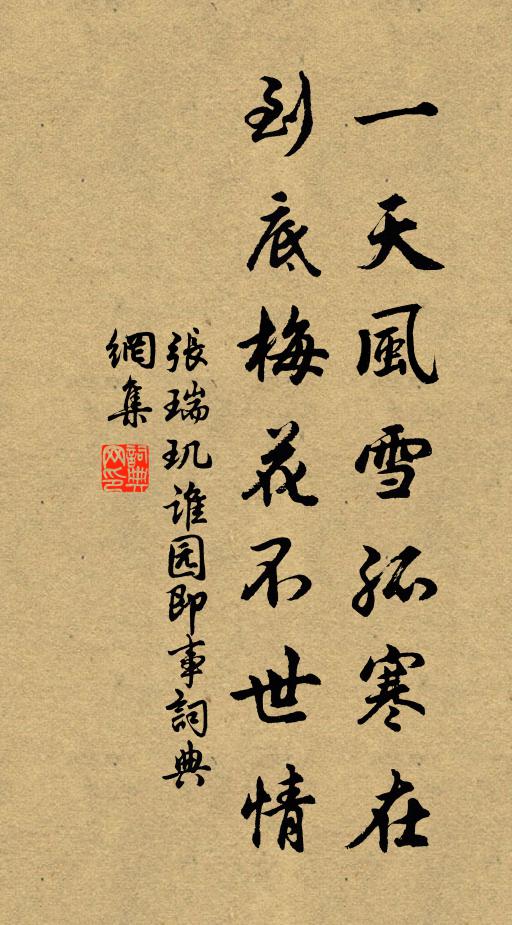 一天風雪孤寒在
到底梅花不世情
張瑞玑誰园即事詞典
網集
詞典
网印